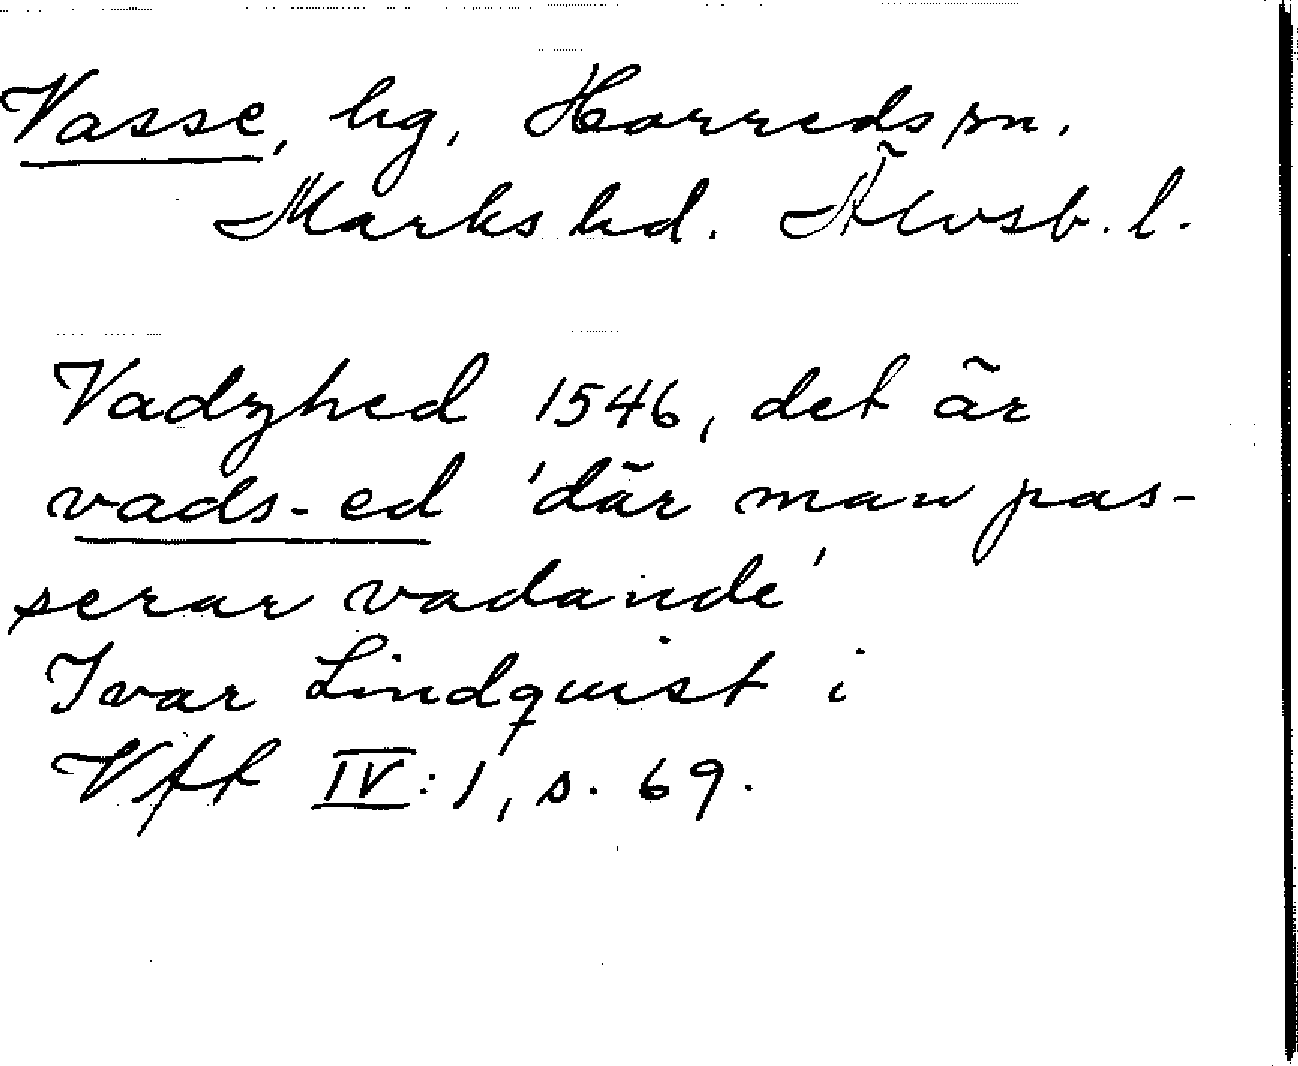 Vasse, hg, Horreds sn.
Marks hd. Älvsb. l.
Vadzhed 1546, det är
vads-ed 'där man pas-
serar vadande'
Ivar Lindquist i
Vff IV:1, s. 69.